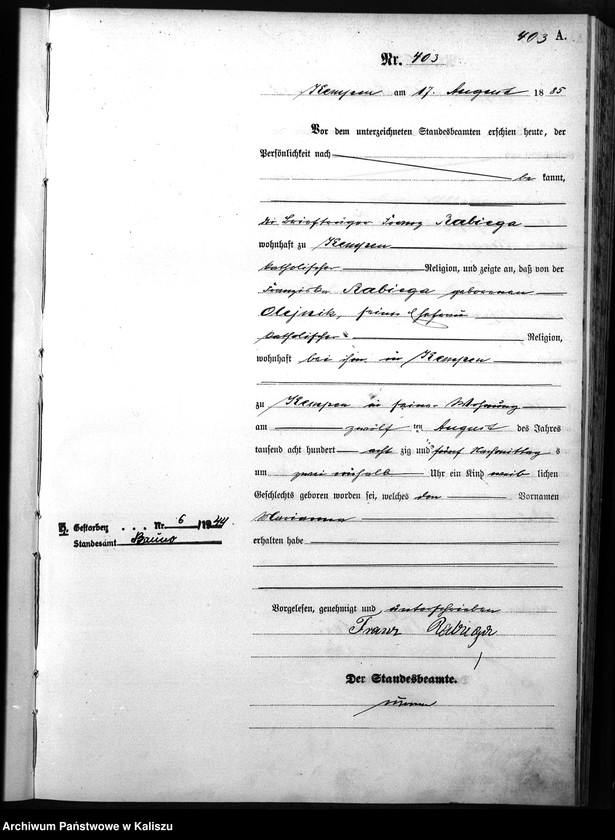 403 A.
Nr. 403
Kempen am 17. August 1885
Vor dem unterzeichneten Standesbeamten erschien heute, der
Persönlichkeit nach
be kannt,
der Briefträger Franz Rabiega
wohnhaft zu Kempen
katholischer Religion, und zeigte an, daß von der
Franziska Rabiega geborenen
Olejnik, seiner Ehefrau
katholischer Religion,
wohnhaft bei ihm in Kempen
zu Kempen in seiner Wohnung
am zwölf ten August des Jahres
tausend acht hundert acht zig und fünf Nachmittag s
um Uhr ein Kind weib lichen
Geschlechts geboren worden sei, welches den Vornamen
Marianna
erhalten habe
H. Gestorben . . . Nr. 6 /1944
Standesamt
Vorgelesen, genehmigt und unterschrieben
Franz Rabiega
Der Standesbeamte.
Archiwum Państwowe w Kaliszu